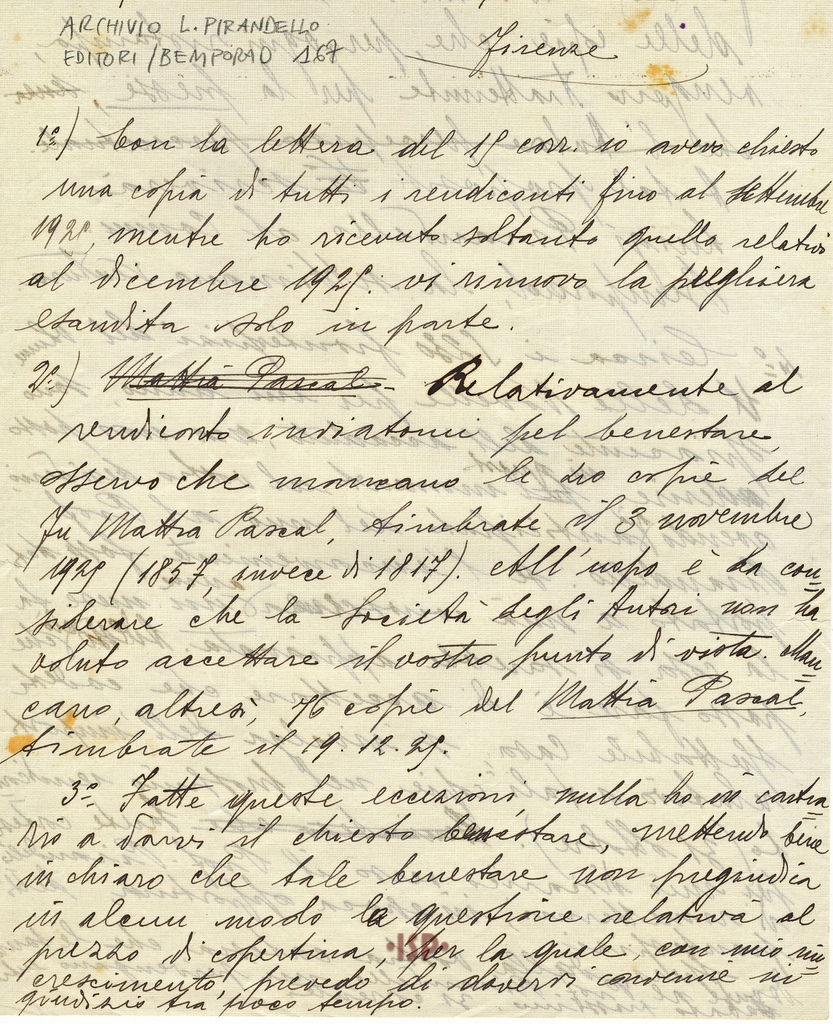 ARCHIVIO L. PIRANDELLO
EDITORI / BEMPORAD 167
Firenze
1º) Con la lettera del 15 corr. io avevo chiesto
una copia di tutti i rendiconti fino al settembre
1925, mentre ho ricevuto soltanto quello relativo
al dicembre 1925: vi rinnovo la preghiera
esaudita solo in parte.
2º) Mattia Pascal - Relativamente al
rendiconto inviatomi pel benestare,
osservo che mancano le copie del
Fu Mattia Pascal, timbrate il 3 novembre
1925 (1857, invece di 1817). All'uopo è da con=
siderare che la Società degli Autori non ha
voluto accettare il vostro punto di vista. Man=
cano, altresì, 76 copie del Mattia Pascal,
timbrate il 19.12.25.
3º- Fatte queste eccezioni, nulla ho in contra
rio a darvi il chiesto benestare, mettendo bene
in chiaro che tale benestare non pregiudica
in alcun modo la questione relativa al
prezzo di copertina, per la quale, con mio rin=
crescimento, prevedo di dovervi convenire in
giudizio tra poco tempo.
·ISD·